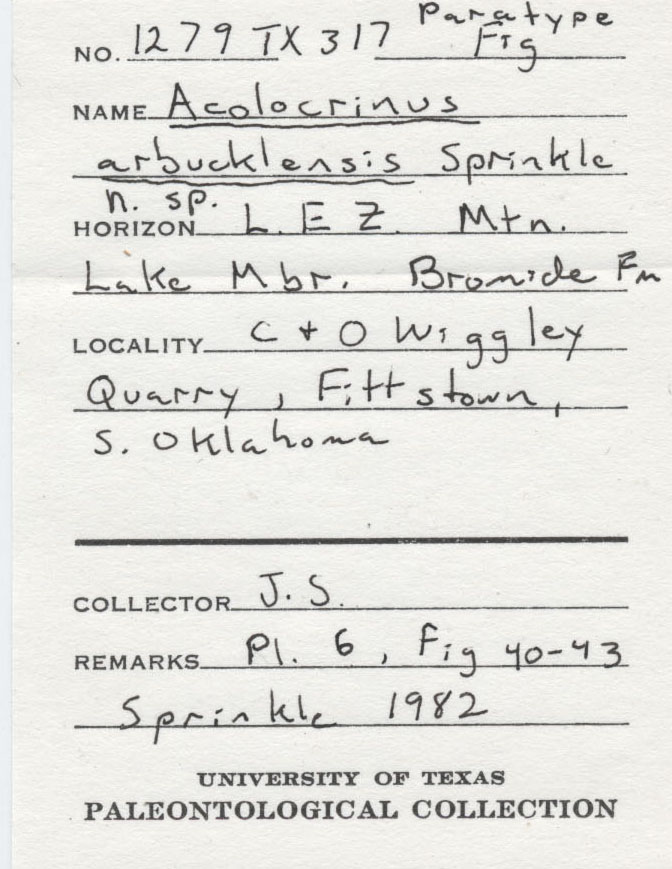 Paratype
NO. 1279 TX 317 Fig
NAME Acolocrinus
arbucklensis Sprinkle
n. sp.
HORIZON L. E Z. Mtn.
Lake Mbr. Bromide Fm
LOCALITY C + O Wiggley
Quarry, Fittstown,
S. Oklahoma
COLLECTOR J. S.
REMARKS Pl. 6, Fig 40-43
Sprinkle 1982
UNIVERSITY OF TEXAS
PALEONTOLOGICAL COLLECTION